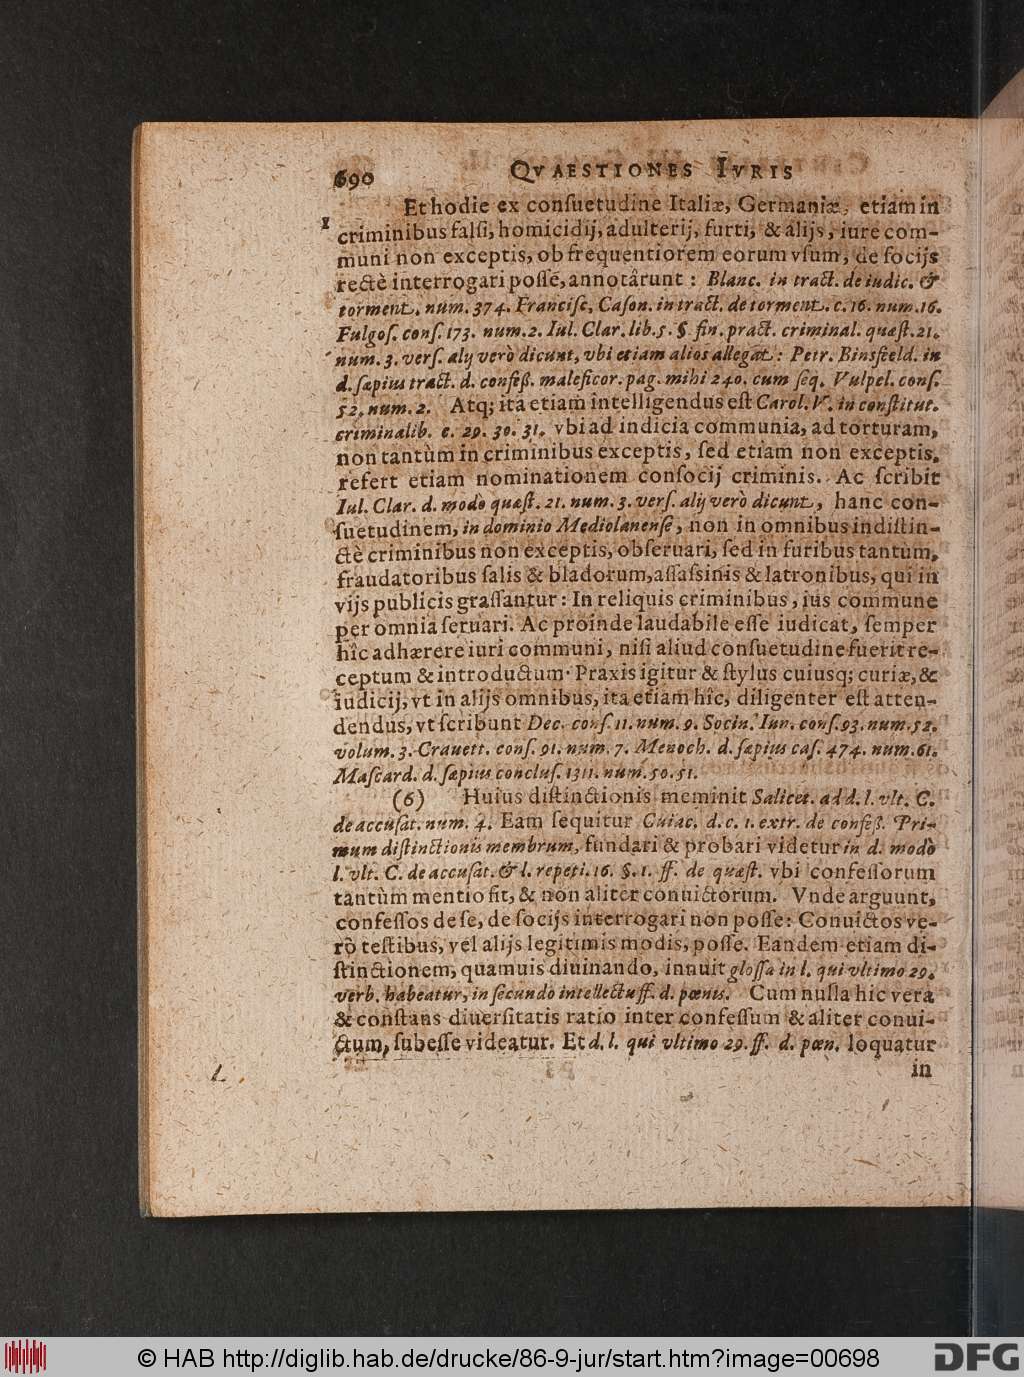 690 QVAESTIONES IVRIS
Et hodie ex conſuetudine Italiæ, Germaniæ, etiam in
1 criminibus falſi, homicidij, adulterij, furti, & alijs, iure com-
muni non exceptis, ob frequentiorem eorum vſum, de ſocijs
rectè interrogari poſſe, annotârunt: Blanc. in tract. de iudic. &
torment. num. 374. Franciſc. Caſon. in tract. de torment. c. 16. num. 16.
Fulgoſ. conſ. 173. num. 2. Iul. Clar. lib. 5. §. fin. pract. criminal. quæſt. 21.
num. 3. verſ. alij verò dicunt, vbi etiam alios allegat: Petr. Binsfeld. in
d. ſæpius tract. d. confeß. maleficor. pag. mihi 240. cum ſeq. Vulpel. conſ.
52. num. 2. Atq; ita etiam intelligendus eſt Carol. V. in conſtitut.
criminalib. c. 29. 30. 31. vbi ad indicia communia, ad torturam,
non tantùm in criminibus exceptis, ſed etiam non exceptis,
refert etiam nominationem conſocij criminis. Ac ſcribit
Iul. Clar. d. modò quæſt. 21. num. 3. verſ. alij verò dicunt, hanc con-
ſuetudinem, in dominio Mediolanenſe, non in omnibus indiſtin-
ctè criminibus non exceptis, obſeruari, ſed in furibus tantùm,
fraudatoribus ſalis & bladorum, aſſaſsinis & latronibus, qui in
vijs publicis graſſantur: In reliquis criminibus, ius commune
per omnia ſeruari. Ac proinde laudabile eſſe iudicat, ſemper
hîc adhærere iuri communi, niſi aliud conſuetudine fuerit re-
ceptum & introductum. Praxis igitur & ſtylus cuiusq; curiæ, &
iudicij, vt in alijs omnibus, ita etiam hîc, diligenter eſt atten-
dendus, vt ſcribunt Dec. conſ. 11. num. 9. Socin. Iun. conſ. 93. num. 52.
volum. 3. Crauett. conſ. 91. num. 7. Menoch. d. ſæpius caſ. 474. num. 61.
Maſcard. d. ſæpius concluſ. 1311. num. 50. 51.
(6) Huius diſtinctionis meminit Salicet. ad d. l. vlt. C.
de accuſat. num. 4. Eam ſequitur Cuiac. d. c. 1. extr. de confeß. Pri-
mum diſtinctionis membrum, fundari & probari videtur in d. modò
l. vlt. C. de accuſat. & l. repeti. 16. §. 1. ff. de quæſt. vbi confeſſorum
tantùm mentio fit, & non aliter conuictorum. Vnde arguunt,
confeſſos de ſe, de ſocijs interrogari non poſſe: Conuictos ve-
rò teſtibus, vel alijs legitimis modis, poſſe. Eandem etiam di-
ſtinctionem, quamuis diuinando, innuit gloſſa in l. qui vltimo 29.
verb. habeatur, in ſecundo intellectu ff. d. pœnis. Cum nulla hic vera
& conſtans diuerſitatis ratio inter confeſſum & aliter conui-
ctum, ſubeſſe videatur. Et d. l. qui vltimo 29. ff. d. pœn. loquatur
in
© HAB http://diglib.hab.de/drucke/86-9-jur/start.htm?image=00698
DFG